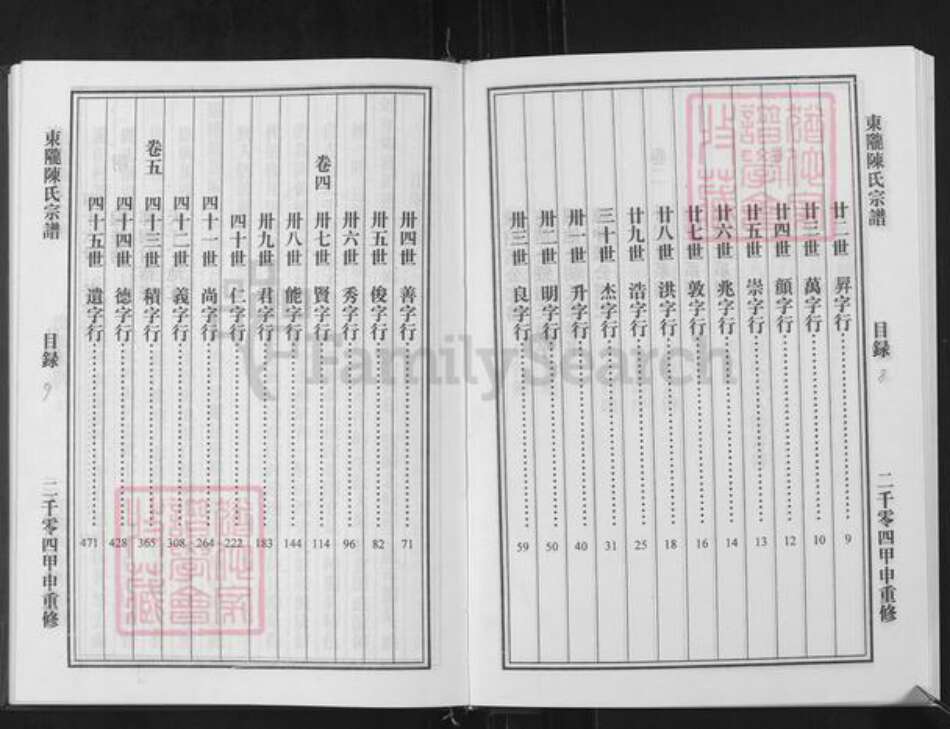 東隴陳氏宗譜
目録
8
二千零四甲申重修
廿二世 昇字行 9
廿三世 萬字行 10
廿四世 顏字行 12
廿五世 崇字行 13
廿六世 兆字行 14
廿七世 敦字行 16
廿八世 洪字行 18
廿九世 浩字行 25
三十世 杰字行 31
卅一世 升字行 40
卅二世 明字行 50
卅三世 良字行 59
卅四世 善字行 71
卅五世 俊字行 82
卅六世 秀字行 96
卷四
卅七世 賢字行 114
卅八世 能字行 144
卅九世 君字行 183
四十世 仁字行 222
四十一世 尚字行 264
四十二世 義字行 308
卷五
四十三世 積字行 365
四十四世 德字行 428
四十五世 遺字行 471
東隴陳氏宗譜
目録
9
二千零四甲申重修
FamilySearch